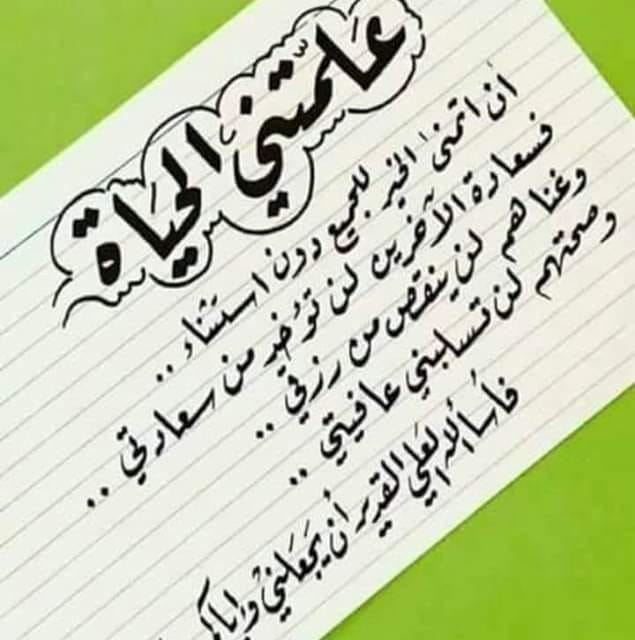 علمتني الحياة
أن اتمنى الخير للجميع دون استثناء ..
فسعادة الآخرين لن تؤخذ من سعادتي ..
وغناهم لن ينقص من رزقي ..
وصحتهم لن تسلبني عافيتي ..
فأسأل الله العلي القدير أن يجعلني وإياكم